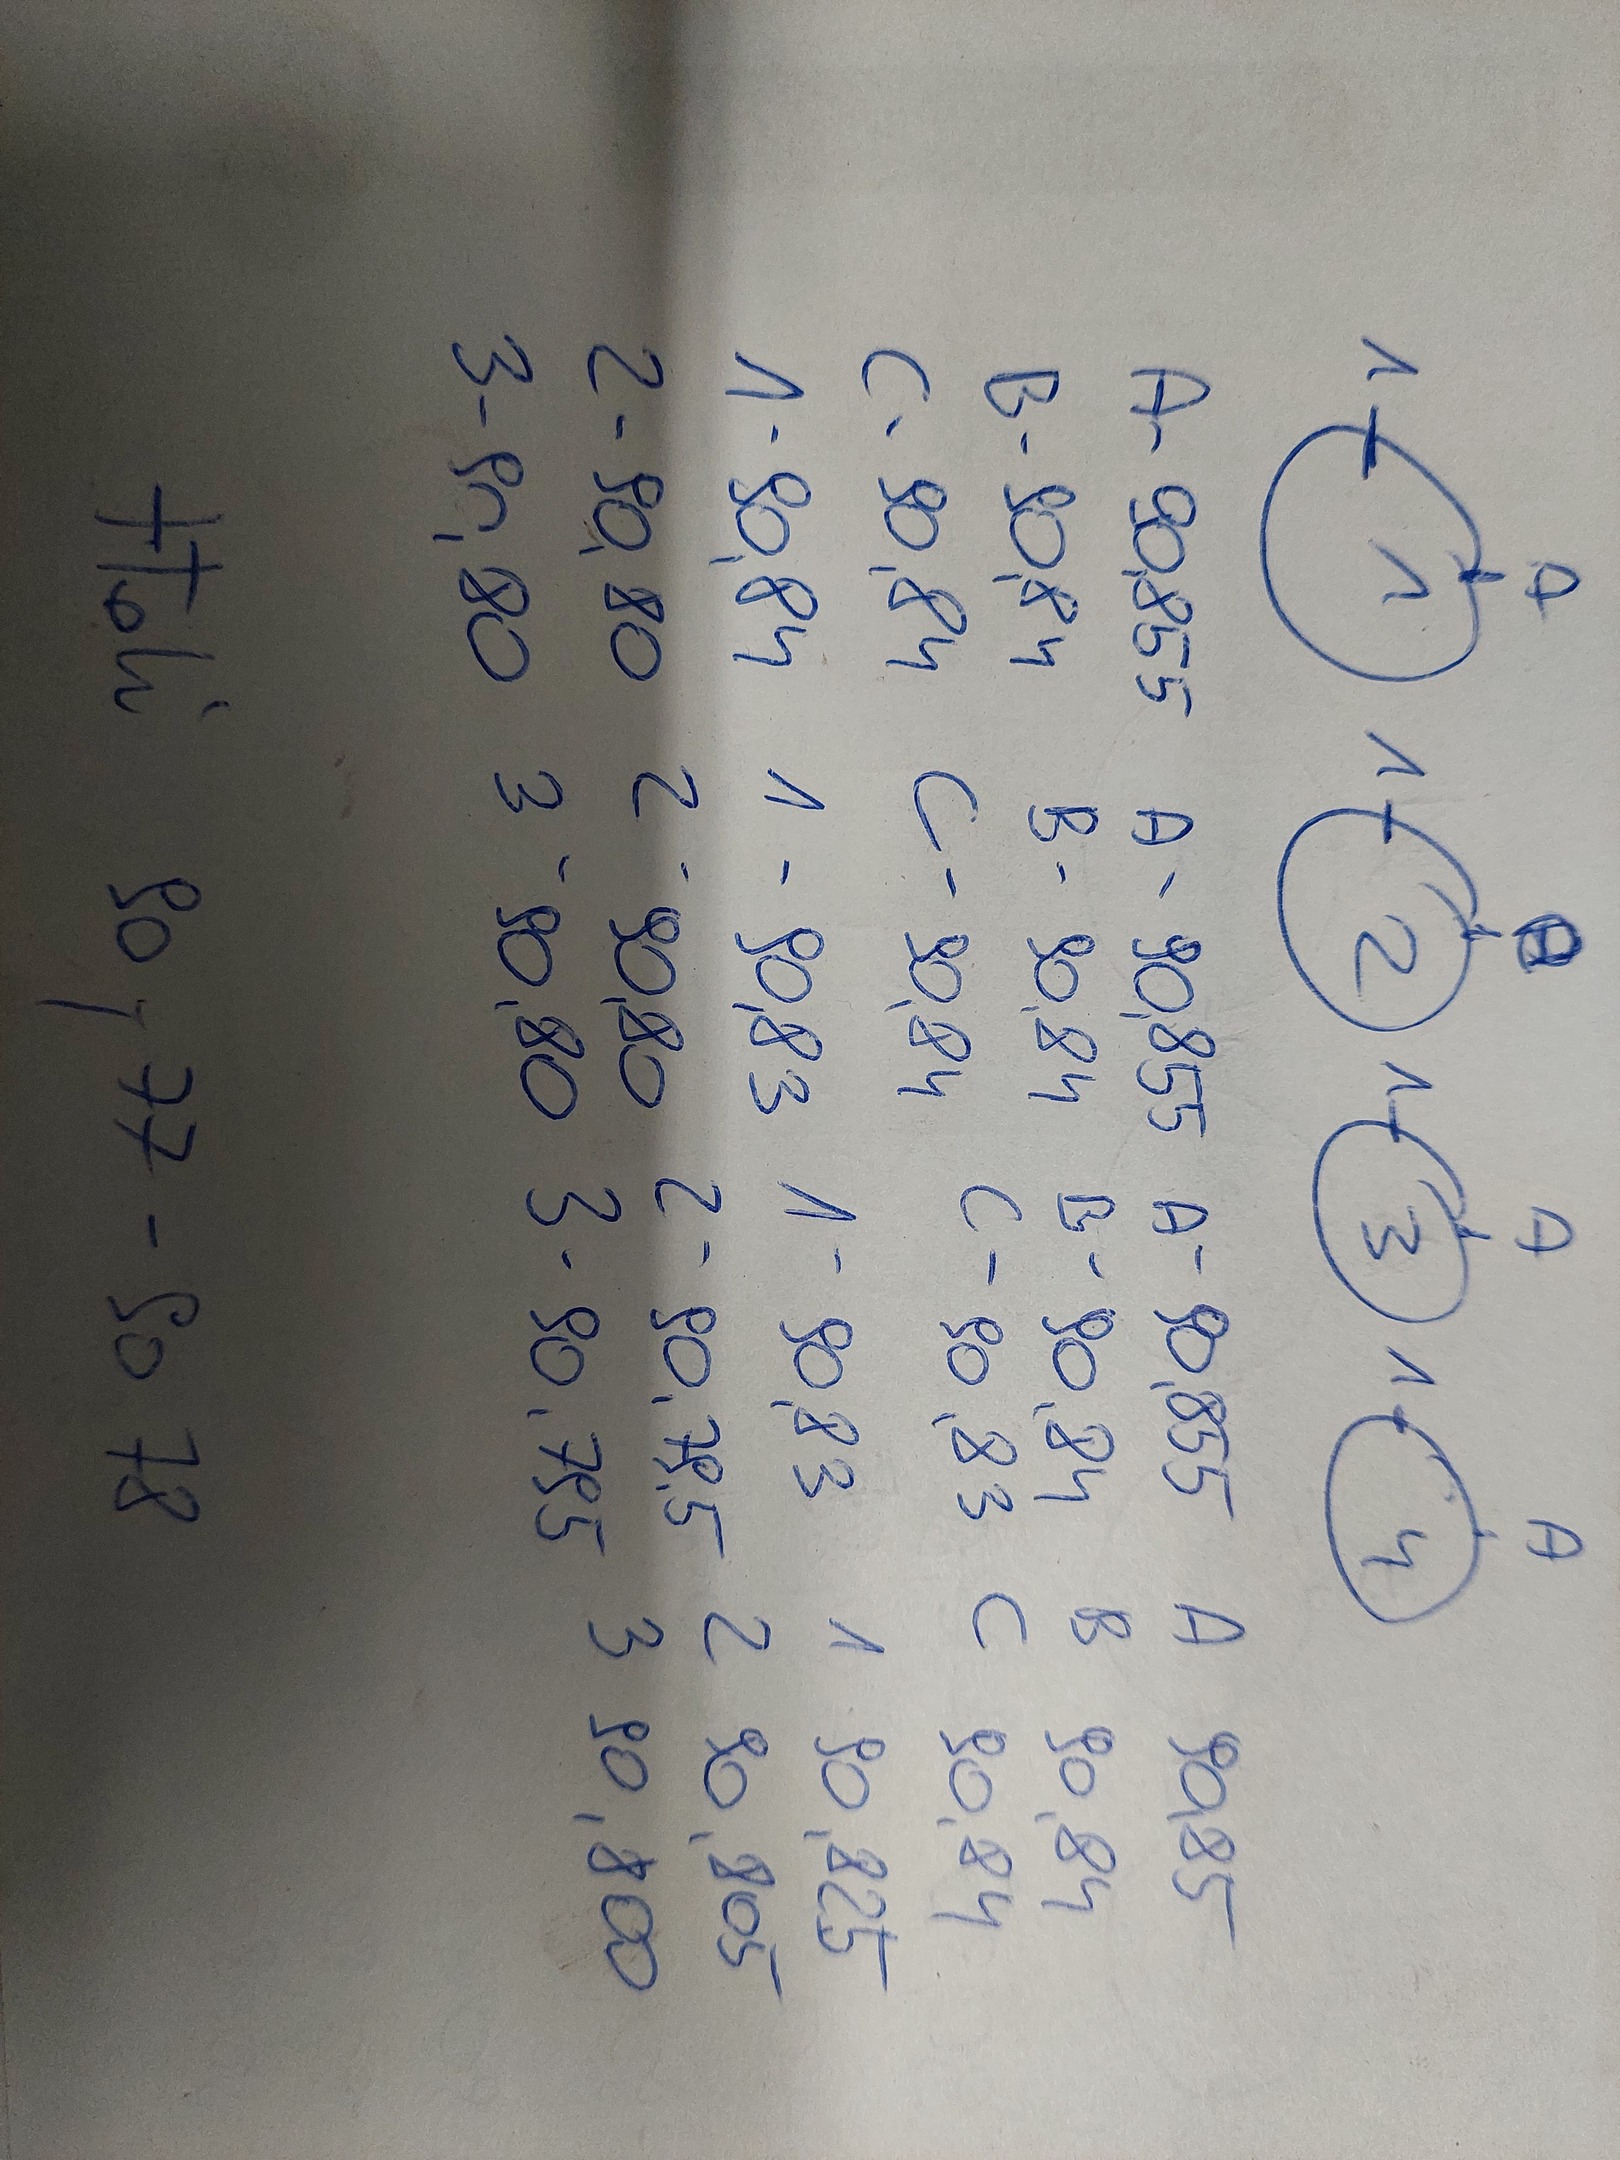 A A A A
1 1 1 2 1 3 1 4
A- 90,855 A- 90,855 A- 90,855 A 90,85
B- 90,84 B- 90,84 B- 90,84 B 90,84
C- 90,84 C- 90,84 C- 90,83 C 90,84
1- 90,84 1- 90,83 1- 90,83 1 90,825
2- 90,80 2- 90,80 2- 90,795 2 90,805
3- 90,80 3- 90,80 3- 90,795 3 90,800
Tłoki 90,77 - 90,78